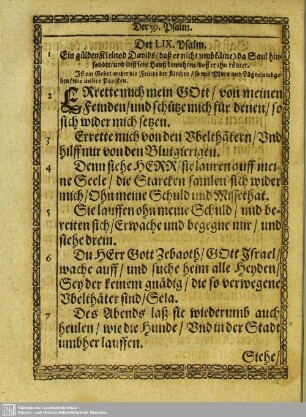 Der 59. Psalm.
Der LIX. Psalm.
1 Ein gülden Kleinod Davids / daß er nicht umbkäme / da Saul hin
sandte / und ließ sein Hauß bewahren / daß er ihn tödtet.
Ist ein Gebet wider die Feinde der Kirchen / so mit Mum und Lügen umbge
hen / wie unsere Papisten.
2 ERrette mich mein GOtt / von meinen
Feinden / und schütze mich für denen / so
sich wider mich setzen.
3 Errette mich von den Vbelthätern / Vnd
hilff mir von den Blutgierigen.
4 Denn siehe HERR / sie lauren auff mei-
ne Seele / die Starcken samlen sich wider
mich / Ohn meine Schuld und Missethat.
5 Sie lauffen ohn meine Schuld / und be-
reiten sich / Erwache und begegne mir / und
siehe drein.
6 Du HErr Gott Zebaoth / GOtt Jsrael /
wache auff / und suche heim alle Heyden /
Sey der keinem gnädig / die so verwegene
Vbelthäter sind / Sela.
7 Des Abends laß sie wiederumb auch
heulen / wie die Hunde / Vnd in der Stadt
umbher lauffen.
Siehe /